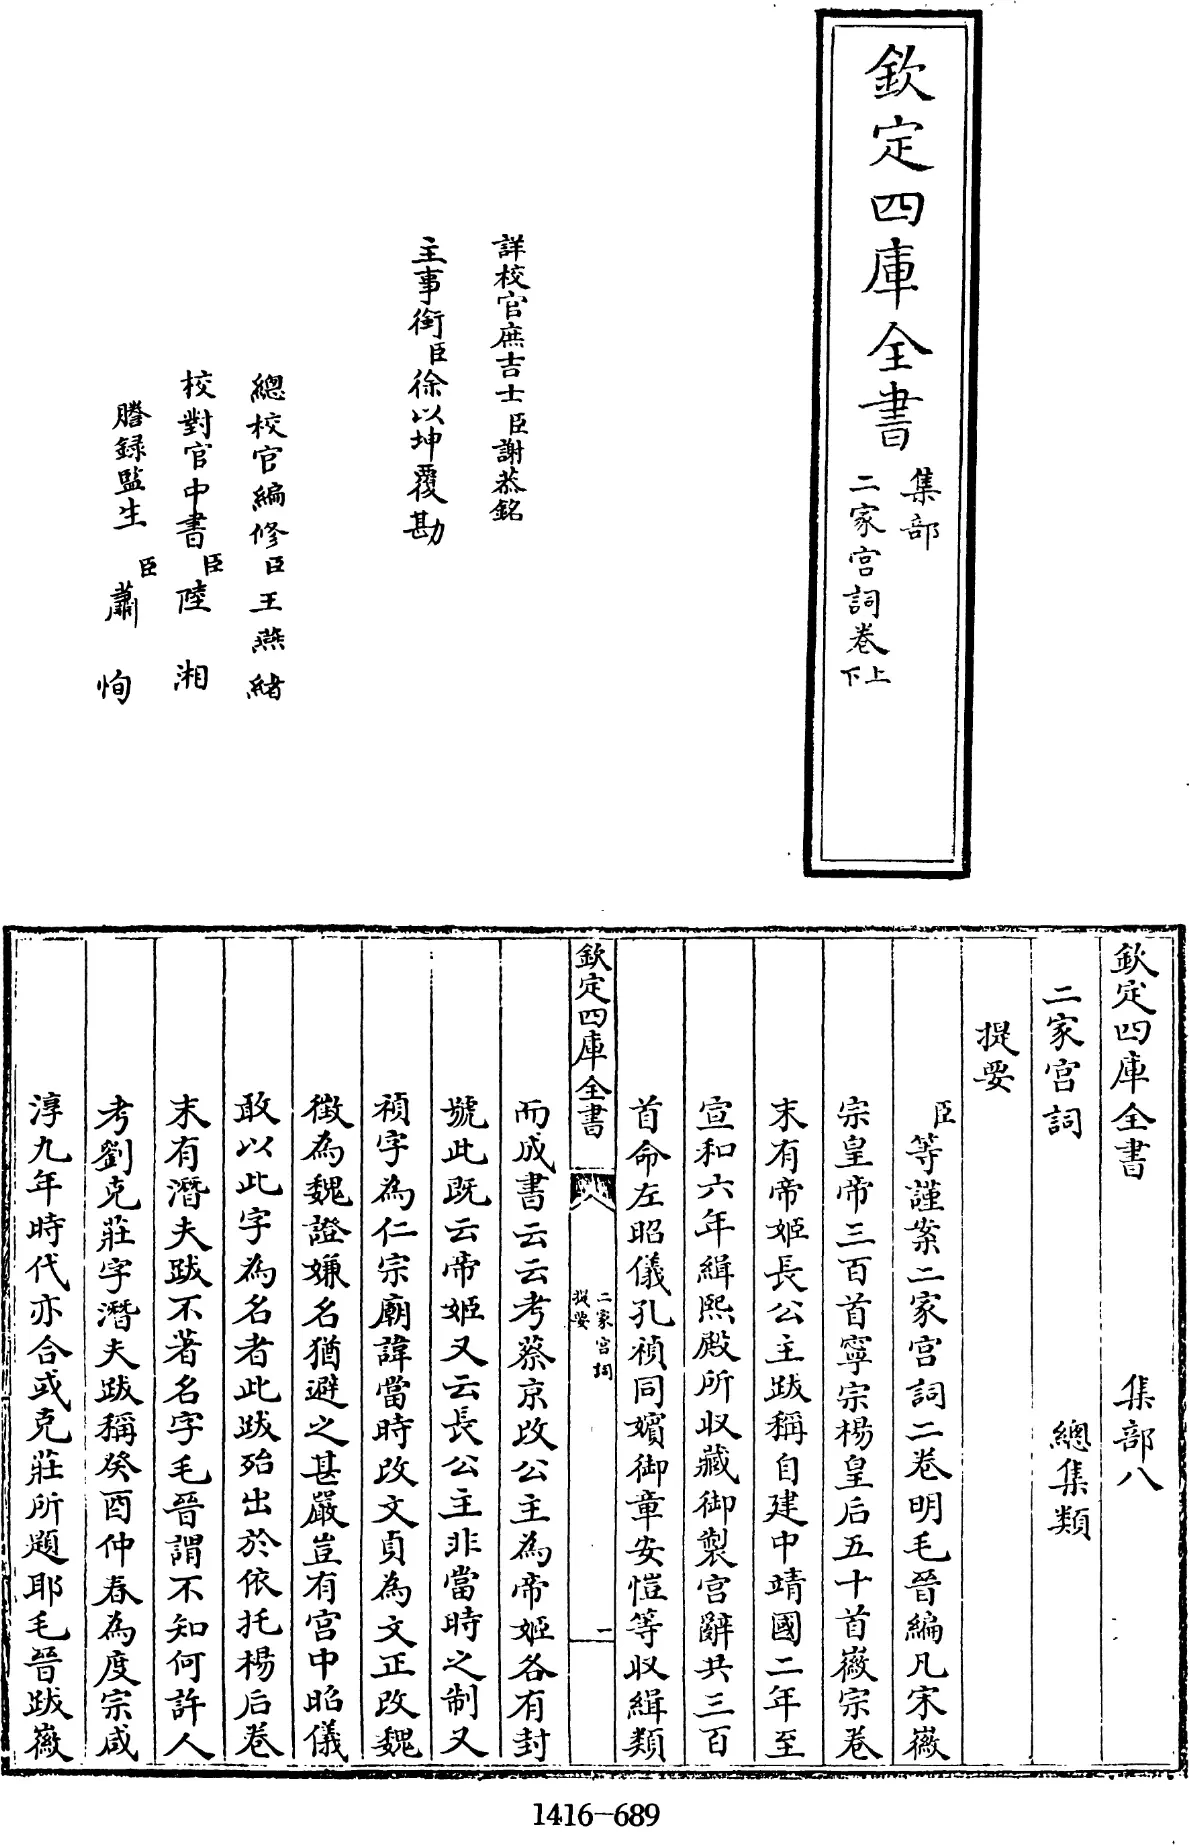 欽定四庫全書
集部
二家宮詞卷上下
詳校官庶吉士臣謝恭銘
主事銜臣徐以坤覆勘
總校官編修臣王燕緒
校對官中書臣陸湘
謄録監生臣蕭恂
欽定四庫全書 集部八
二家宮詞 總集類
提要
臣等謹案二家宮詞二卷明毛晉編凡宋徽
宗皇帝三百首寧宗楊皇后五十首徽宗卷
末有帝姬長公主跋稱自建中靖國二年至
宣和六年緝熙殿所收藏御製宮辭共三百
首命左昭儀孔禎同嬪御章安愷等收緝類
欽定四庫全書
二家宮詞
提要
一
而成書云云考蔡京改公主為帝姬各有封
號此既云帝姬又云長公主非當時之制又
禎字為仁宗廟諱當時改文貞為文正改魏
徵為魏證嫌名猶避之甚嚴豈有宮中昭儀
敢以此字為名者此跋殆出於依托楊后卷
末有潛夫跋不著名字毛晉謂不知何許人
考劉克莊字潛夫跋稱癸酉仲春為度宗咸
淳九年時代亦合或克莊所題耶毛晉跋徽
1416-689